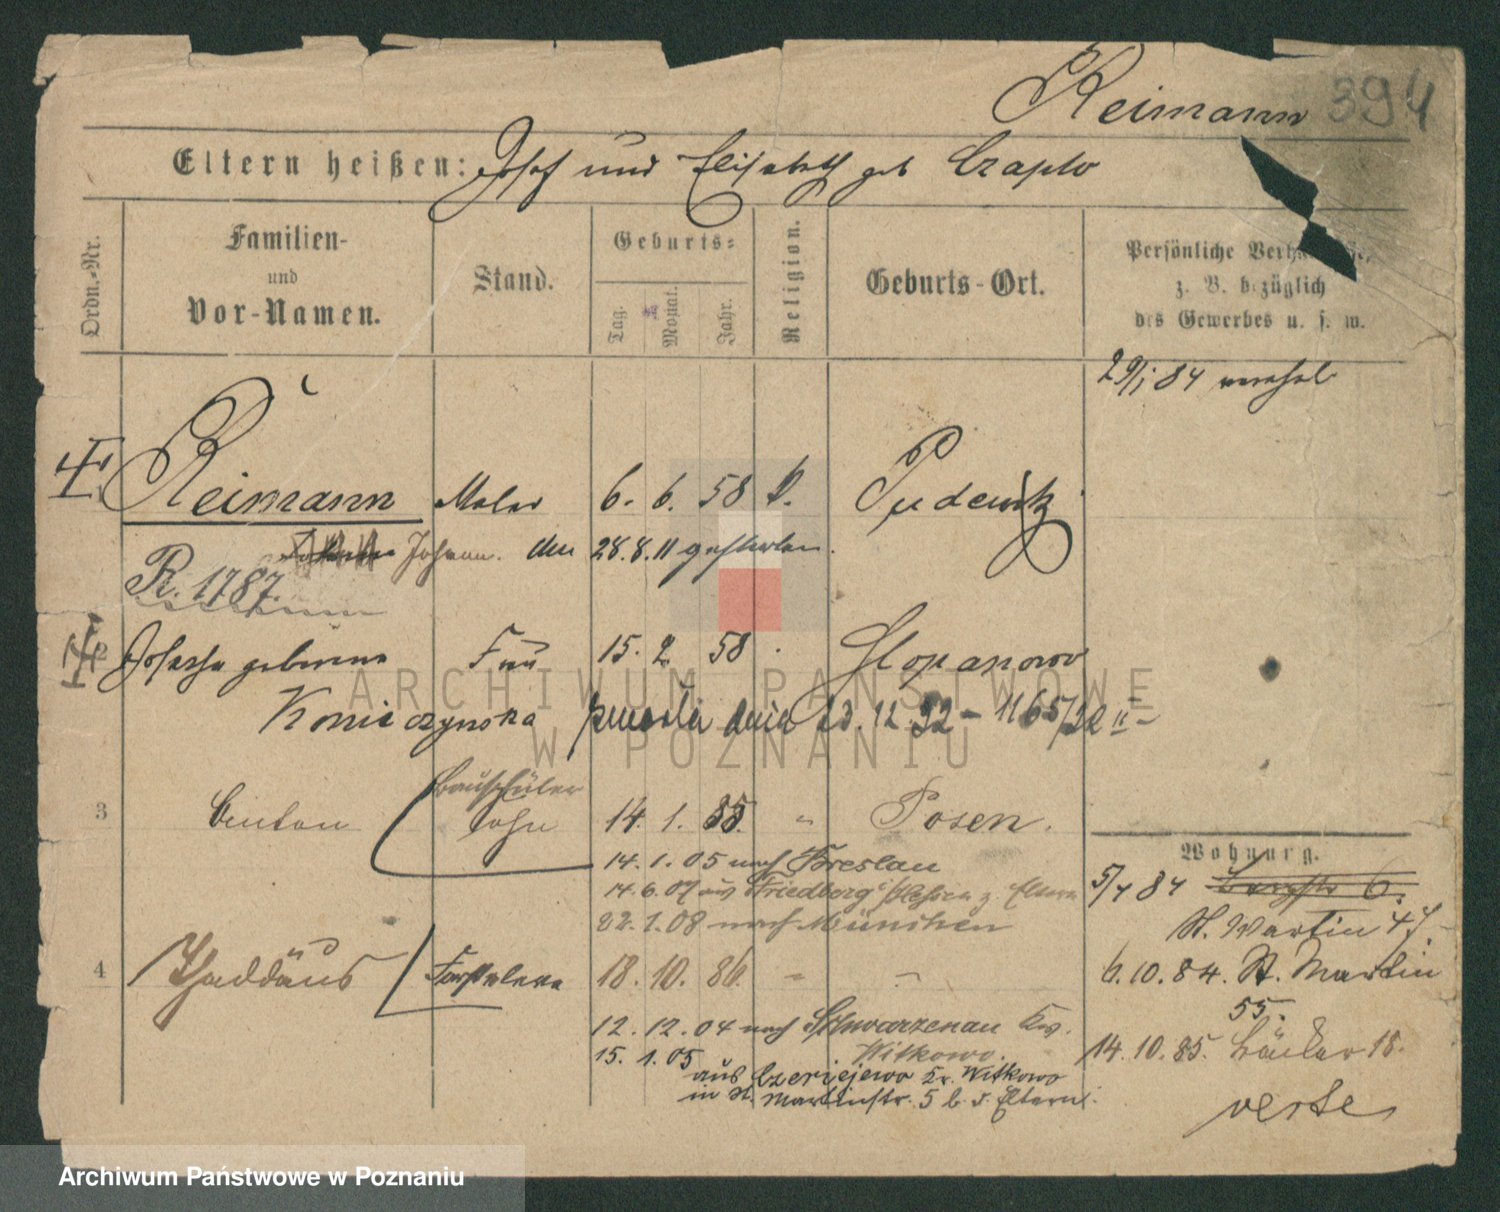 Reimann 394
Eltern heißen: Josef und Elisabeth geb Czaplo
Ordn.-Nr.
Familien-
und
Vor-Namen.
Stand.
Geburts-
Tag.
Monat.
Jahr.
Religion.
Geburts-Ort.
Persönliche
z. B. bezüglich
des Gewerbes u. s. w.
29/1 84
1 Reimann Maler 6. 6. 58 k. Pudewitz
Johann. den 28.8.11 gestorben.
R. 1787.
2 Josepha geborene Frau 15. 2. 58 Slopanowo
Koniaczynska zmarła dnia 12.32 - 1165/32 II -
Bauschüler
3 Sohn 14. 1. 85. " Posen.
14. 1. 05 nach Breslau
14.6.07 aus Friedberg z. Eltern
22. 1. 08 nach München
4 Thaddäus 18. 10. 86. " "
12. 12. 04 nach Schwarzenau Kr.
Witkowo.
15. 1. 05
aus Czeriejewo Kr. Witkowo
in St. Martinstr. 5 b. d. Eltern.
Wohnung.
5/4 84 6.
St. Martin 47
6.10.84. St. Martin
55.
14. 10. 85. 18.
verte
ARCHIWUM PAŃSTWOWE
W POZNANIU
Archiwum Państwowe w Poznaniu